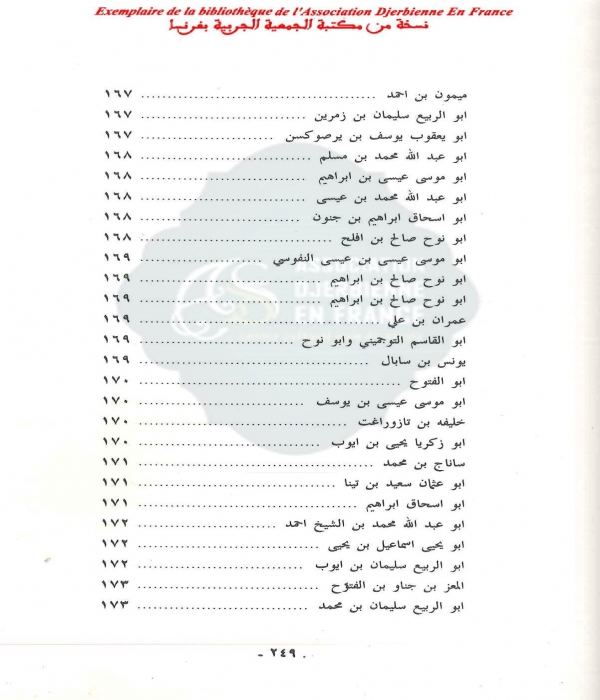 Exemplaire de la bibliothèque de l'Association Djerbienne En France
نسخة من مكتبة الجمعية الجربية بفرنسا
ميمون بن احمد ........................................ ١٦٧
ابو الربيع سليمان بن زمرين ........................................ ١٦٧
ابو يعقوب يوسف بن يرصوكسن ........................................ ١٦٧
ابو عبد الله محمد بن مسلم ........................................ ١٦٨
ابو موسى عيسى بن ابراهيم ........................................ ١٦٨
ابو عبد الله محمد بن عيسى ........................................ ١٦٨
ابو اسحاق ابراهيم بن جنون ........................................ ١٦٨
ابو نوح صالح بن افلح ........................................ ١٦٨
ابو موسى عيسى بن عيسى النفوسي ........................................ ١٦٩
ابو نوح صالح بن ابراهيم ........................................ ١٦٩
ابو نوح صالح بن ابراهيم ........................................ ١٦٩
عمران بن علي ........................................ ١٦٩
ابو القاسم التوجميني وابو نوح ........................................ ١٦٩
يونس بن سابال ........................................ ١٦٩
ابو الفتوح ........................................ ١٧٠
ابو موسى عيسى بن يوسف ........................................ ١٧٠
خليفه بن تازوراغت ........................................ ١٧٠
ابو زكريا يحيى بن ايوب ........................................ ١٧٠
ساناج بن محمد ........................................ ١٧١
ابو عثمان سعيد بن تينا ........................................ ١٧١
ابو اسحاق ابراهيم ........................................ ١٧١
ابو عبد الله محمد بن الشيخ احمد ........................................ ١٧٢
ابو يحيى اسماعيل بن يحيى ........................................ ١٧٢
ابو الربيع سليمان بن ايوب ........................................ ١٧٢
المعز بن جناو بن الفتوّح ........................................ ١٧٣
ابو الربيع سليمان بن محمد ........................................ ١٧٣
ASSOCIATION
DJERBIENNE
EN FRANCE
. ٢٤٩ -